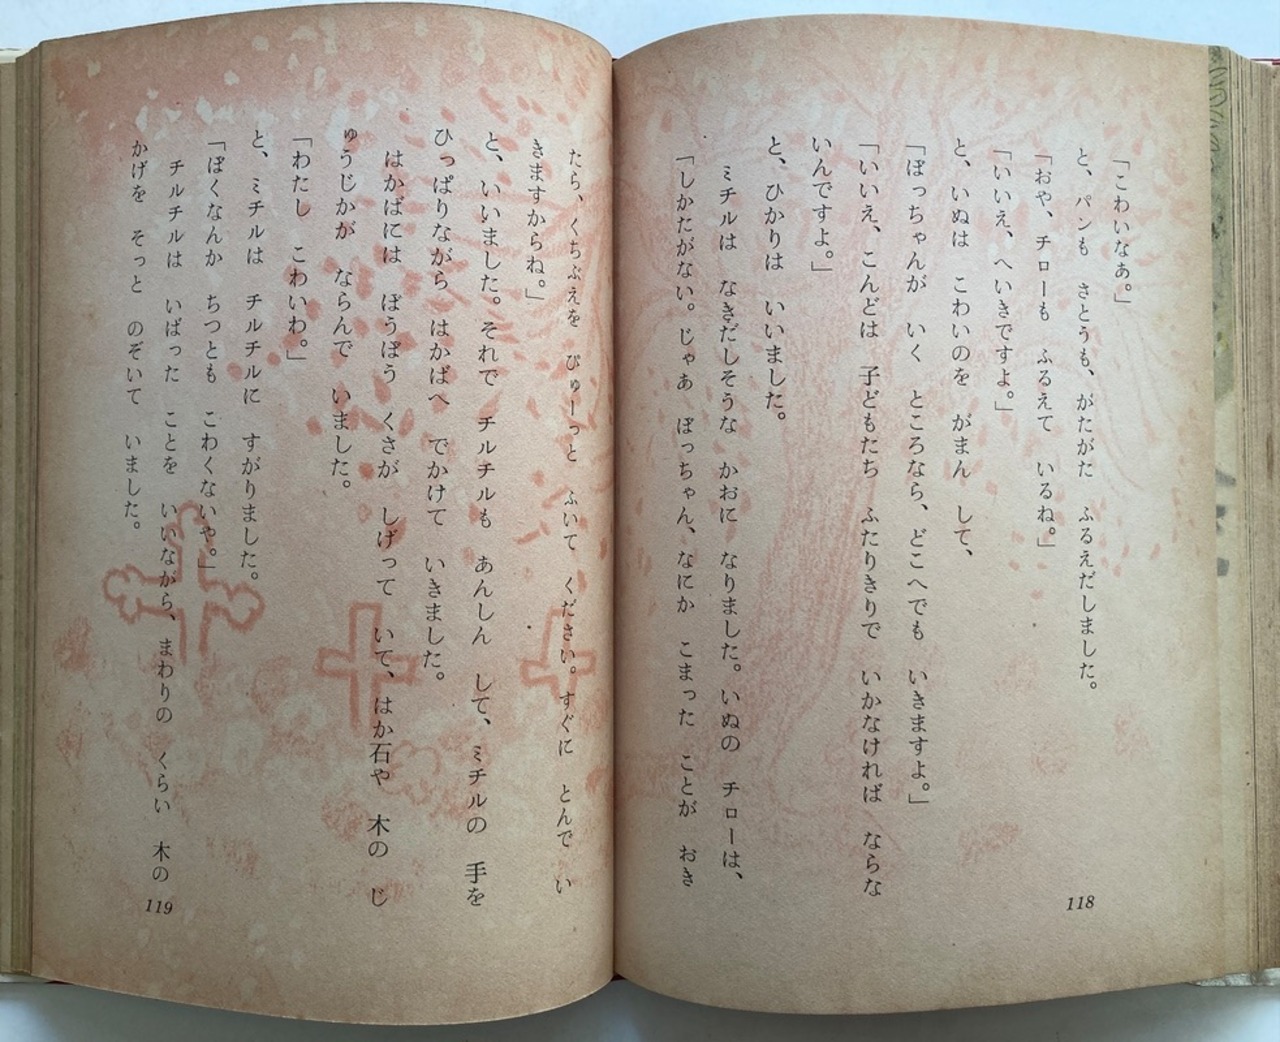 「こわいなあ。」
と、パンも さとうも、がたがた ふるえだしました。
「おや、チローも ふるえて いるね。」
「いいえ、へいきですよ。」
と、いぬは こわいのを がまん して、
「ぼっちゃんが いく ところなら、どこへでも いきますよ。」
「いいえ、こんどは 子どもたち ふたりきりで いかなければ ならな
いんですよ。」
と、ひかりは いいました。
ミチルは なきだしそうな かおに なりました。いぬの チローは、
「しかたがない。じゃあ ぼっちゃん、なにか こまった ことが おき
118
たら、くちぶえを ぴゅーっと ふいて ください。すぐに とんで い
きますからね。」
と、いいました。それで チルチルも あんしん して、ミチルの 手を
ひっぱりながら はかばへ でかけて いきました。
はかばには ぼうぼう くさが しげって いて、はか石や 木の じ
ゅうじかが ならんで いました。
「わたし こわいわ。」
と、ミチルは チルチルに すがりました。
「ぼくなんか ちっとも こわくないや。」
チルチルは いばった ことを いいながら、まわりの くらい 木の
かげを そっと のぞいて いました。
119